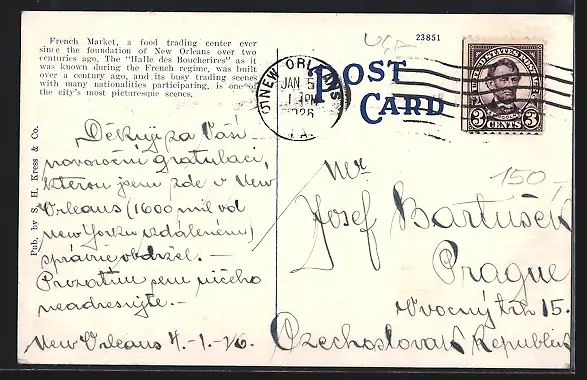 French Market, a food trading center ever
since the foundation of New Orleans over two
centuries ago. The "Halle des Boucheries" as it
was known during the French regime, was built
over a century ago, and its busy trading scenes
with many nationalities participating, is one of
the city's most picturesque scenes.
23851
USA
POST
CARD
NEW ORLEANS
JAN 5
1 PM
1926
LA.
UNITED STATES POSTAGE
LINCOLN
3 CENTS 3
Pub. by S. H. Kress & Co.
Děkuji za Vaši
novoroční gratulaci,
kterou jsem zde v New
Orleans (1600 mil od
New Yorku vzdáleném)
správně obdržel. –
Prozatím sem ničeho
neadresujte. –
New Orleans 4.-1.-26.
150
Mr
Josef Bartušek
Prague
Ovocný trh 15.
Czechoslovak Republick